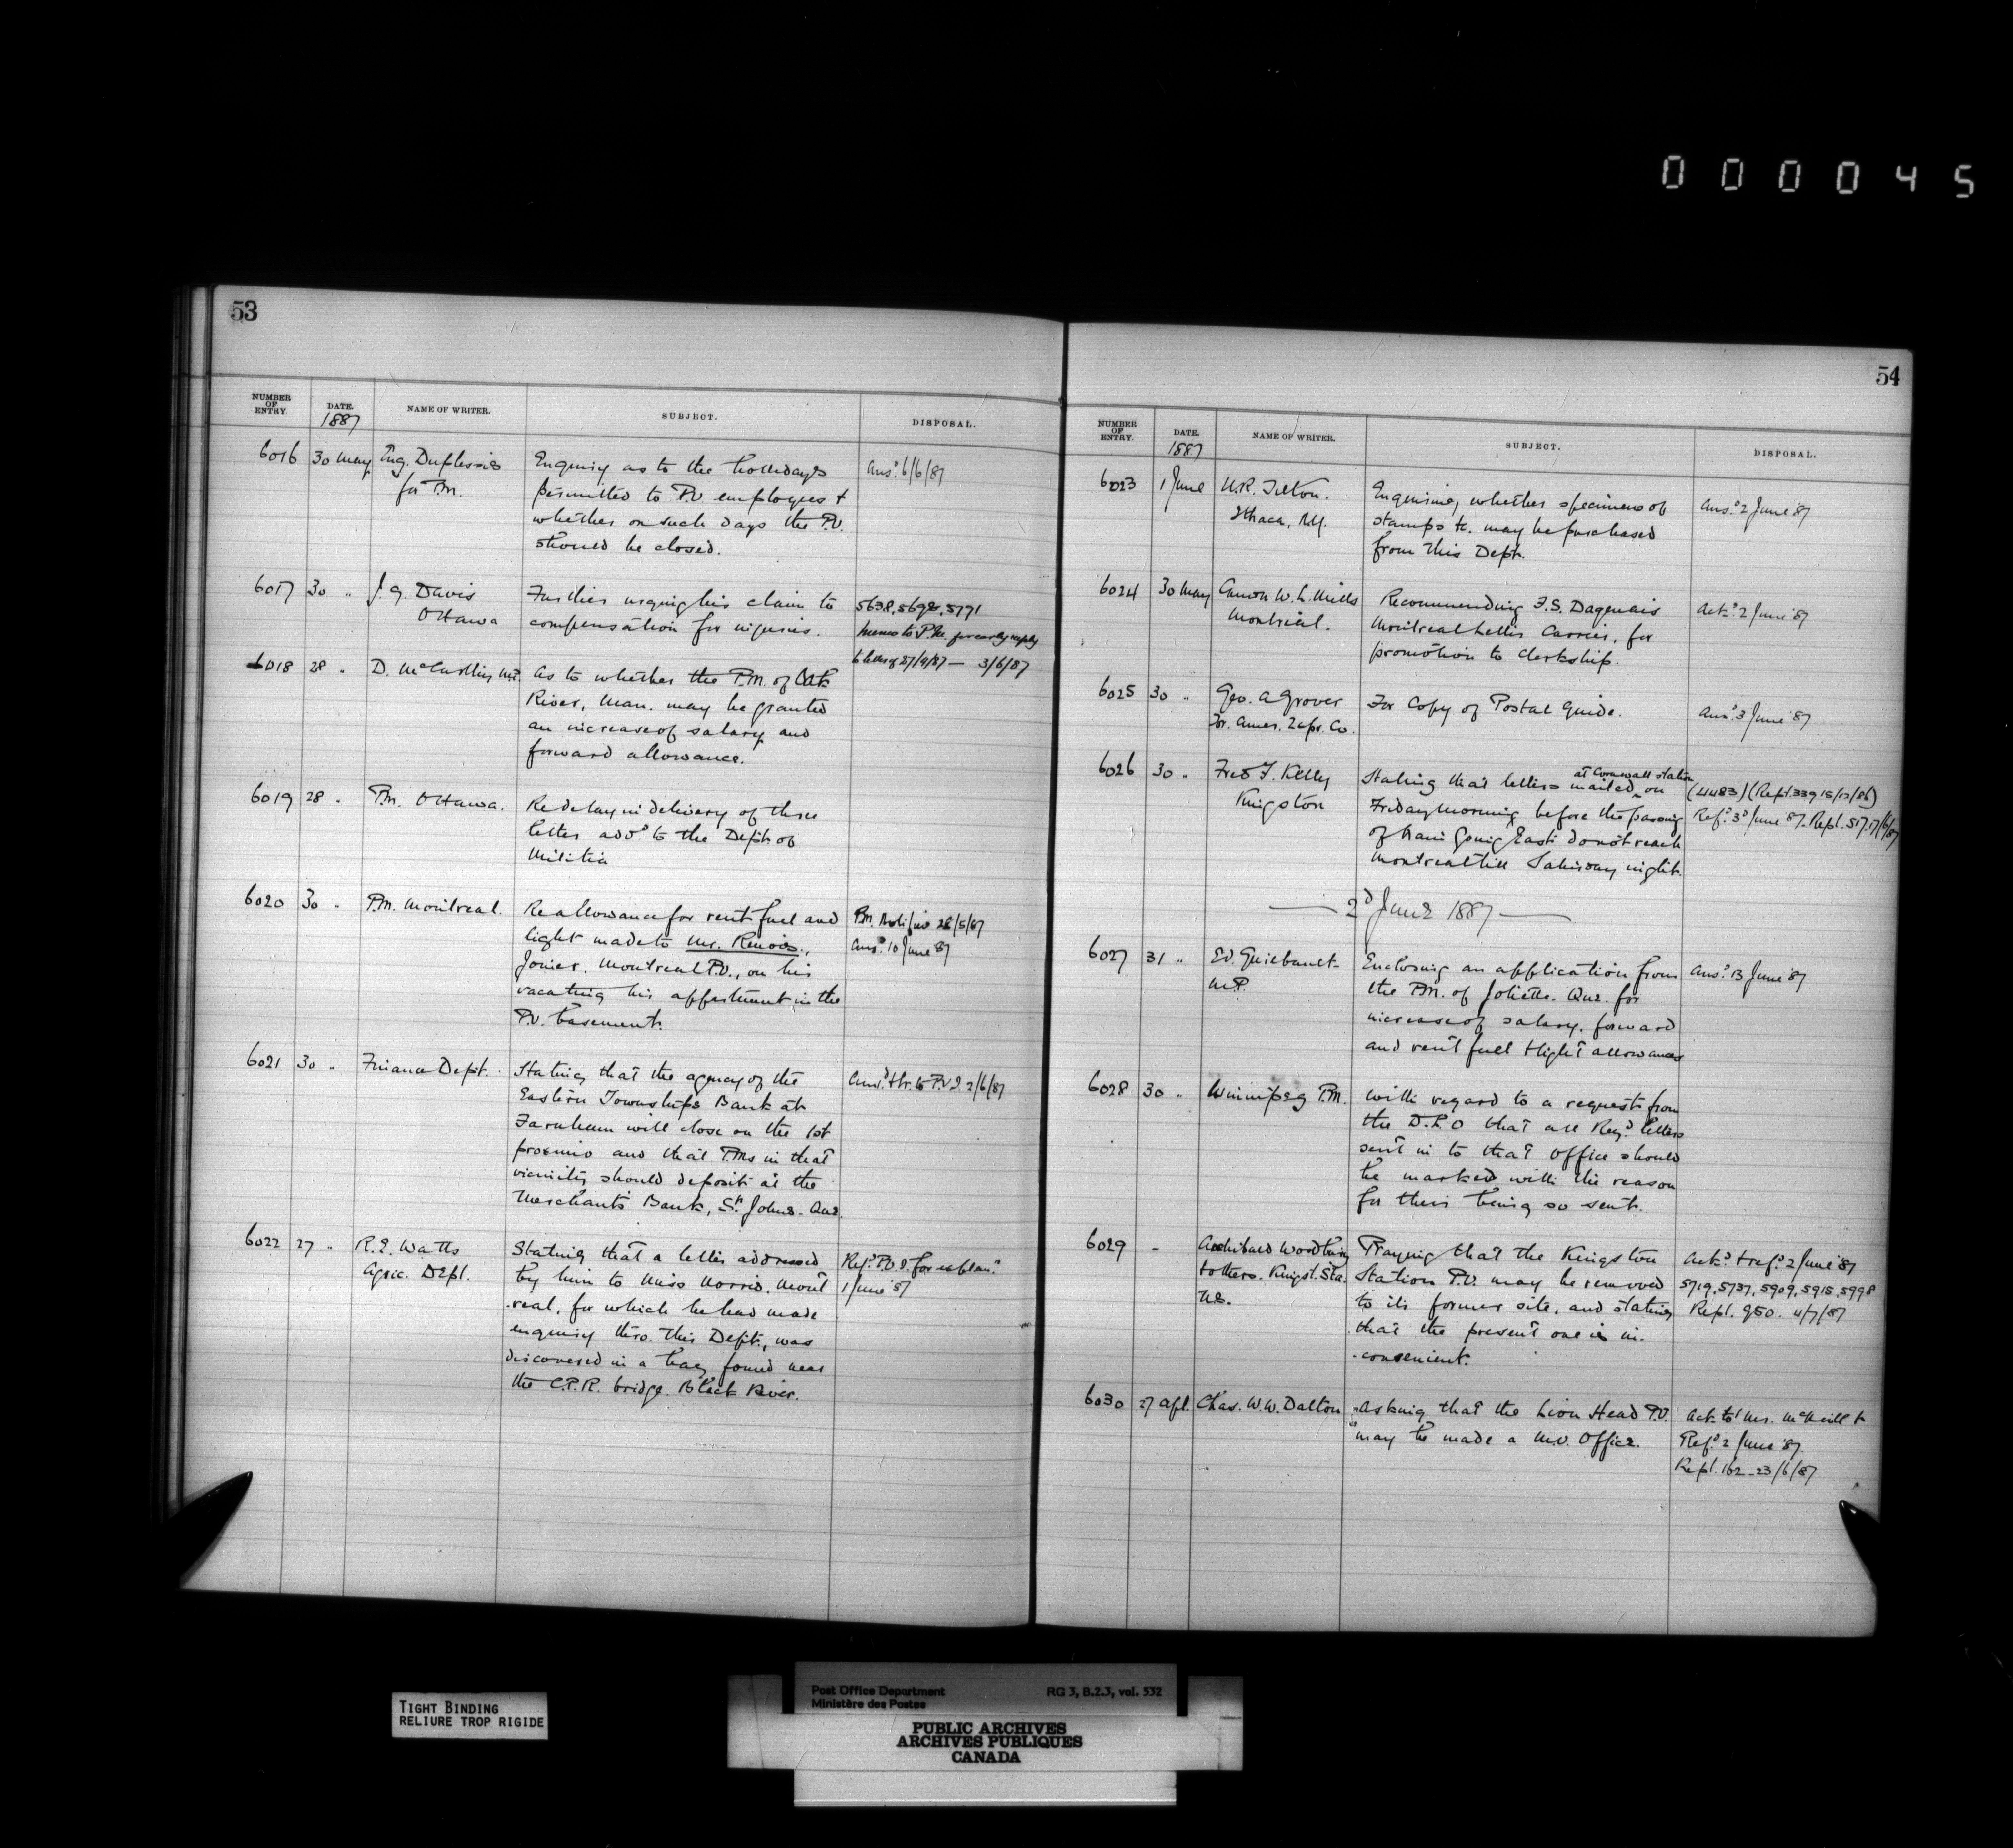 000045
53
NUMBER OF ENTRY.
DATE. 1887
NAME OF WRITER.
SUBJECT.
DISPOSAL.
6016 30 May Eug. Duplessis Enquiry as to the hollidays Ansd 6/6/87
for P.M. permitted to P.O. employees &
whether on such days the P.O.
should be closed.
6017 30 " J. G. Davis Further urging his claim to 5638, 5698, 5771
Ottawa compensation for injuries. Memo to P.M. for early reply
to letter of 27/4/87 — 3/6/87
6018 28 " D. McCarthy M.P. As to whether the P.M. of Oak
River, Man. may be granted
an increase of salary and
forward allowance.
6019 28 " P.M. Ottawa. Re delay in delivery of three
letter addd to the Dept. of
Militia
6020 30 " P.M. Montreal. Re allowance for rent fuel and P.M. 28/5/87
light made to Mr. Renois, Ansd 10 June 87
Joiner, Montreal P.O., on his
vacating his appartment in the
P.O. basement.
6021 30 " Finance Dept. Stating that the agency of the Ansd & tr. to P.O.I. 2/6/87
Eastern Townships Bank at
Farnham will close on the 1st
proximo and that P.Ms in that
vicinity should deposit at the
Merchants Bank, St. Johns. Que.
6022 27 " R.E. Watts Stating that a letter addressed Refd P.O.I. for explann
Agric. Dept. by him to Miss Morris, Mont 1 June '87
-real, for which he had made
enquiry thro. this Dept., was
discovered in a bag found near
the C.P.R. bridge. Black River.
54
NUMBER OF ENTRY.
DATE. 1887
NAME OF WRITER.
SUBJECT.
DISPOSAL.
6023 1 June U.R. Tilton. Enquiring whether specimens of Ansd 2 June '87
Ithaca, N.Y. stamps &c. may be purchased
from this Dept.
6024 30 May Canon W. L. Mills Recommending F.S. Dagenais Ackd 2 June '87
Montreal. Montreal Letter Carrier, for
promotion to clerkship.
6025 30 " Geo. A Grover For Copy of Postal Guide. Ansd 3 June '87
for. Amer. Expr. Co.
6026 30 " Fred J. Kelly Stating that letters mailed at Cornwall station on (4483) (Rept. 339 15/12/86)
Kingston Friday morning before the passing Refd 3d June '87. Rept. 517. 17/6/87
of train going East do not reach
Montreal till Saturday night.
— 2d June 1887 —
6027 31 " Ed. Guilbault Enclosing an application from Ansd 13 June '87
M.P. the P.M. of Joliette. Que. for
increase of salary, forward
and rent fuel & light allowances
6028 30 " Winnipeg P.M. With regard to a request from
the D.L.O that all Regd letters
sent in to that Office should
be marked with the reason
for their being so sent.
6029 - Archibald Woodbury Praying that the Kingston Ackd & refd 2 June '87
& others. Kingst. Sta. Station P.O. may be removed 5719, 5737, 5909, 5915, 5998
N.S. to its former site, and stating Rept. 950. 4/7/87
that the present one is in-
-convenient.
6030 27 Apl. Chas. W.W. Dalton Asking that the Lion Head P.O. Ack. to Mr. McNeill &
may be made a M.O. Office. Refd 2 June '87.
Rept. 162 - 23/6/87
TIGHT BINDING
RELIURE TROP RIGIDE
Post Office Department RG 3, B.2.3, vol. 532
Ministère des Postes
PUBLIC ARCHIVES
ARCHIVES PUBLIQUES
CANADA